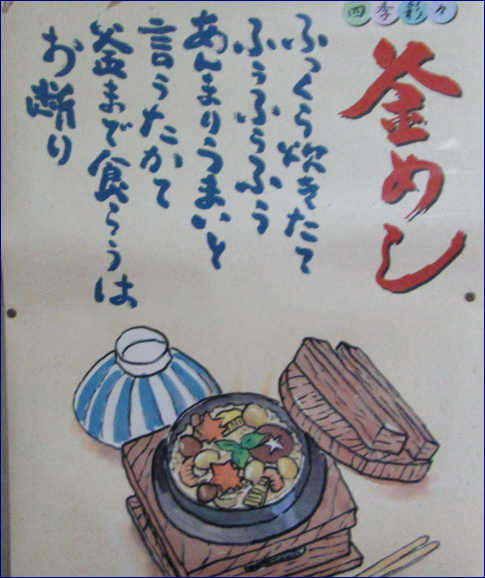 四季彩々
釜めし
ふっくら炊きたて
ふぅふぅふぅ
あんまりうまいと
言うたかて
釜まで食らうは
お断り